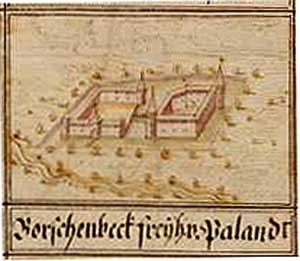 Borschenbeck freyhr. Palandt